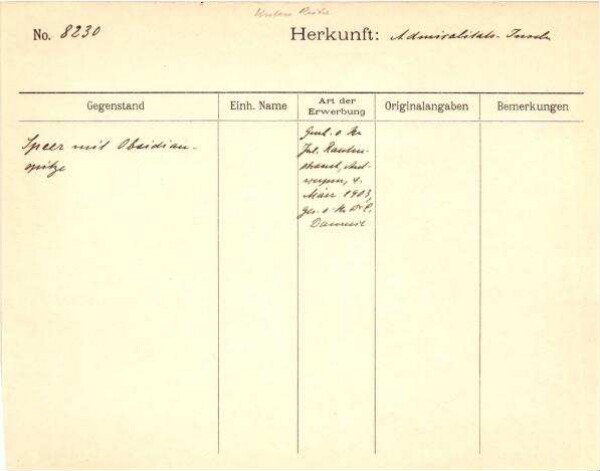 Untere Reihe
No. 8230 Herkunft: Admiralitäts-Inseln
Gegenstand Einh. Name Art der Erwerbung Originalangaben Bemerkungen
Speer mit Obsidian-
spitze
Gml. v. Hr.
Jul. Rauten-
strauch, Ant-
werpen, 4.
März 1903,
ges. v. Hr.